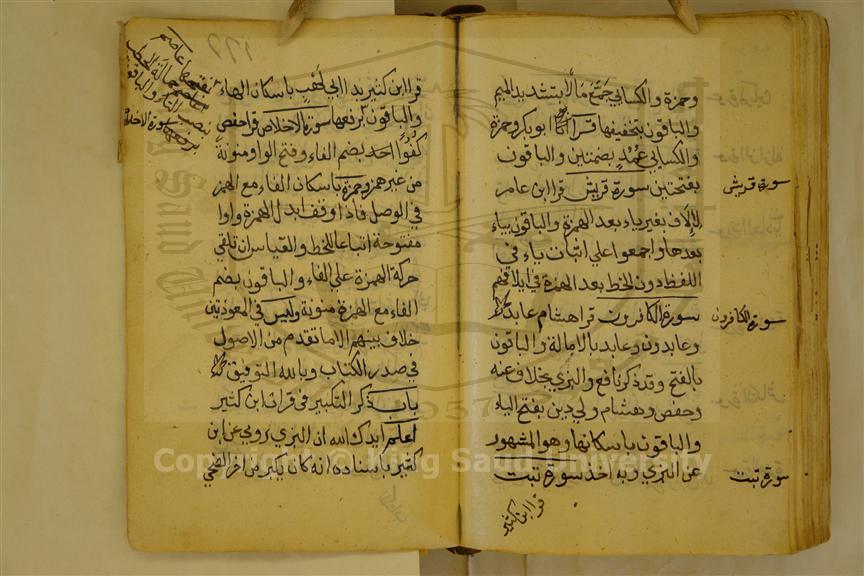 وحمزة والكسائي جَمَّعَ مَالًا بتشديد الميم
والباقون بتخفيفها قرا ابو بكر وحمزة
والكسائي عُمُدٍ بضمتين والباقون
بفتحتين سورة قريش قرا ابن عامر
لإلاف بغير ياء بعد الهمزة والباقون بياء
بعدها واجمعوا على اثبات ياء في
اللفظ دون الخط بعد الهمزة في ايلافهم
سورة الكافرون قرا هشام عابد
وعابدون وعابد بالامالة والباقون
بالفتح وقد ذكر نافع والبزي بخلاف عنه
وحفص وهشام ولي دين بفتح الياء
والباقون باسكانها وهو المشهور
عن البزي وبه اخذ سورة تبت
قرا ابن كثير
سورة قريش
سورة الكافرون
سورة تبت
قرا ابن كثير يدا ابي لَهْبٍ باسكان الهاء
والباقون بفتحها
سورة الاخلاص قرا حفص
كُفُوًا احد بضم الفاء وفتح الواو منونة
من غير همز وحمزة باسكان الفاء مع الهمز
في الوصل فاذا وقف ابدل الهمزة واوا
مفتوحة اتباعا للخط والقياس ان تلقي
حركة الهمزة على الفاء والباقون بضم
الفاء مع الهمزة منونة وليس في المعوذتين
خلاف بينهم الا ما تقدم من الاصول
في صدر الكتاب وبالله التوفيق
باب ذكر التكبير في قراة ابن كثير
اعلم ايدك الله ان البزي روي عن ابن
كثير باسناده انه كان يكبر من اخر الضحي
بفتحها عاصم
حمالة الحطب
بنصب التاء والباقون
برفعها سورة الاخلاص
١٢٢
Copyright © King Saud University
1957